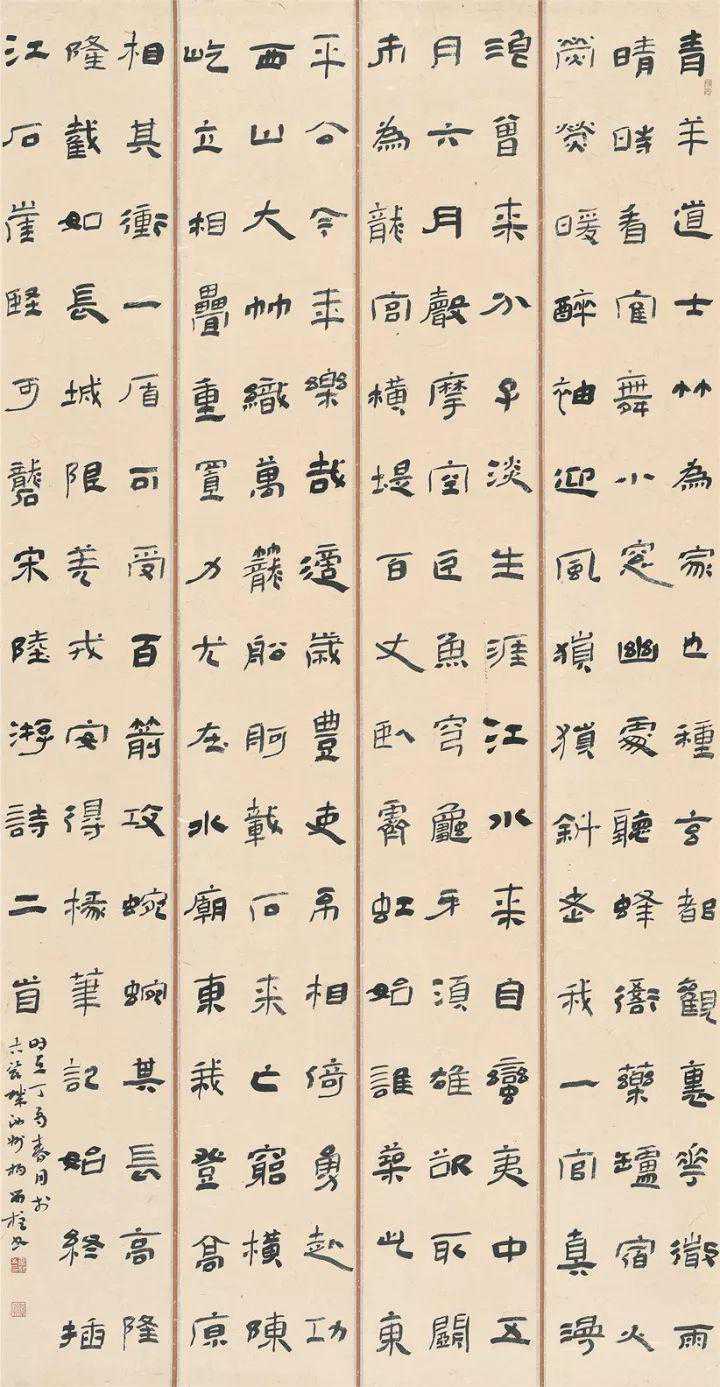 青羊道士竹為家也種玄都觀裏花微雨
晴時看隺舞小窓幽處聽蜂衙藥爐宿火
熒熒暖醉袖迎風獵獵斜老我一官真漫
浪會来分子淡生涯江水来自蠻夷中五
月六月聲摩空巨魚穹龜牙須雄欲取闤
市為龍宮橫堤百丈臥霽虹始誰築此東
平公今年樂哉適歲豐吏不相倚勇赴功
西山大竹織萬籠船舸載石来亡窮橫陳
屹立相疊重置力尤在水廟東我登高原
相其衝一盾可受百箭攻蜿蜿其長高隆
隆截如長城限羌戎安得椽筆記始終插
江石崖堅可礱宋陸游詩二首
時在丁酉春月於